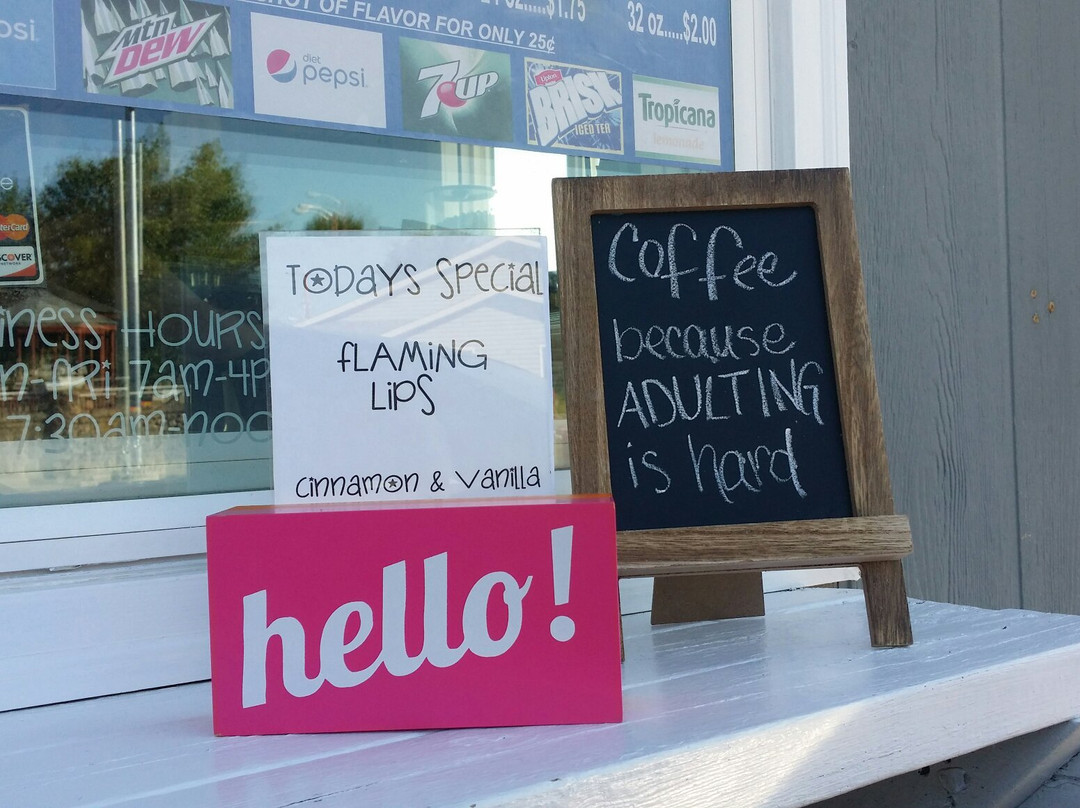 SHOT OF FLAVOR FOR ONLY 25¢
oz.....$1.75
32 oz.....$2.00
psi
mtn DEW
diet pepsi
7UP
Lipton
BRISK
ICED TEA
Tropicana
lemonade
terCard
SCOVER
NETWORK
iness Hours
n-fri 7am-4p
7:30am-noo
Todays Special
flaming
lips
cinnamon & vanilla
hello!
Coffee
because
ADULTING
is hard